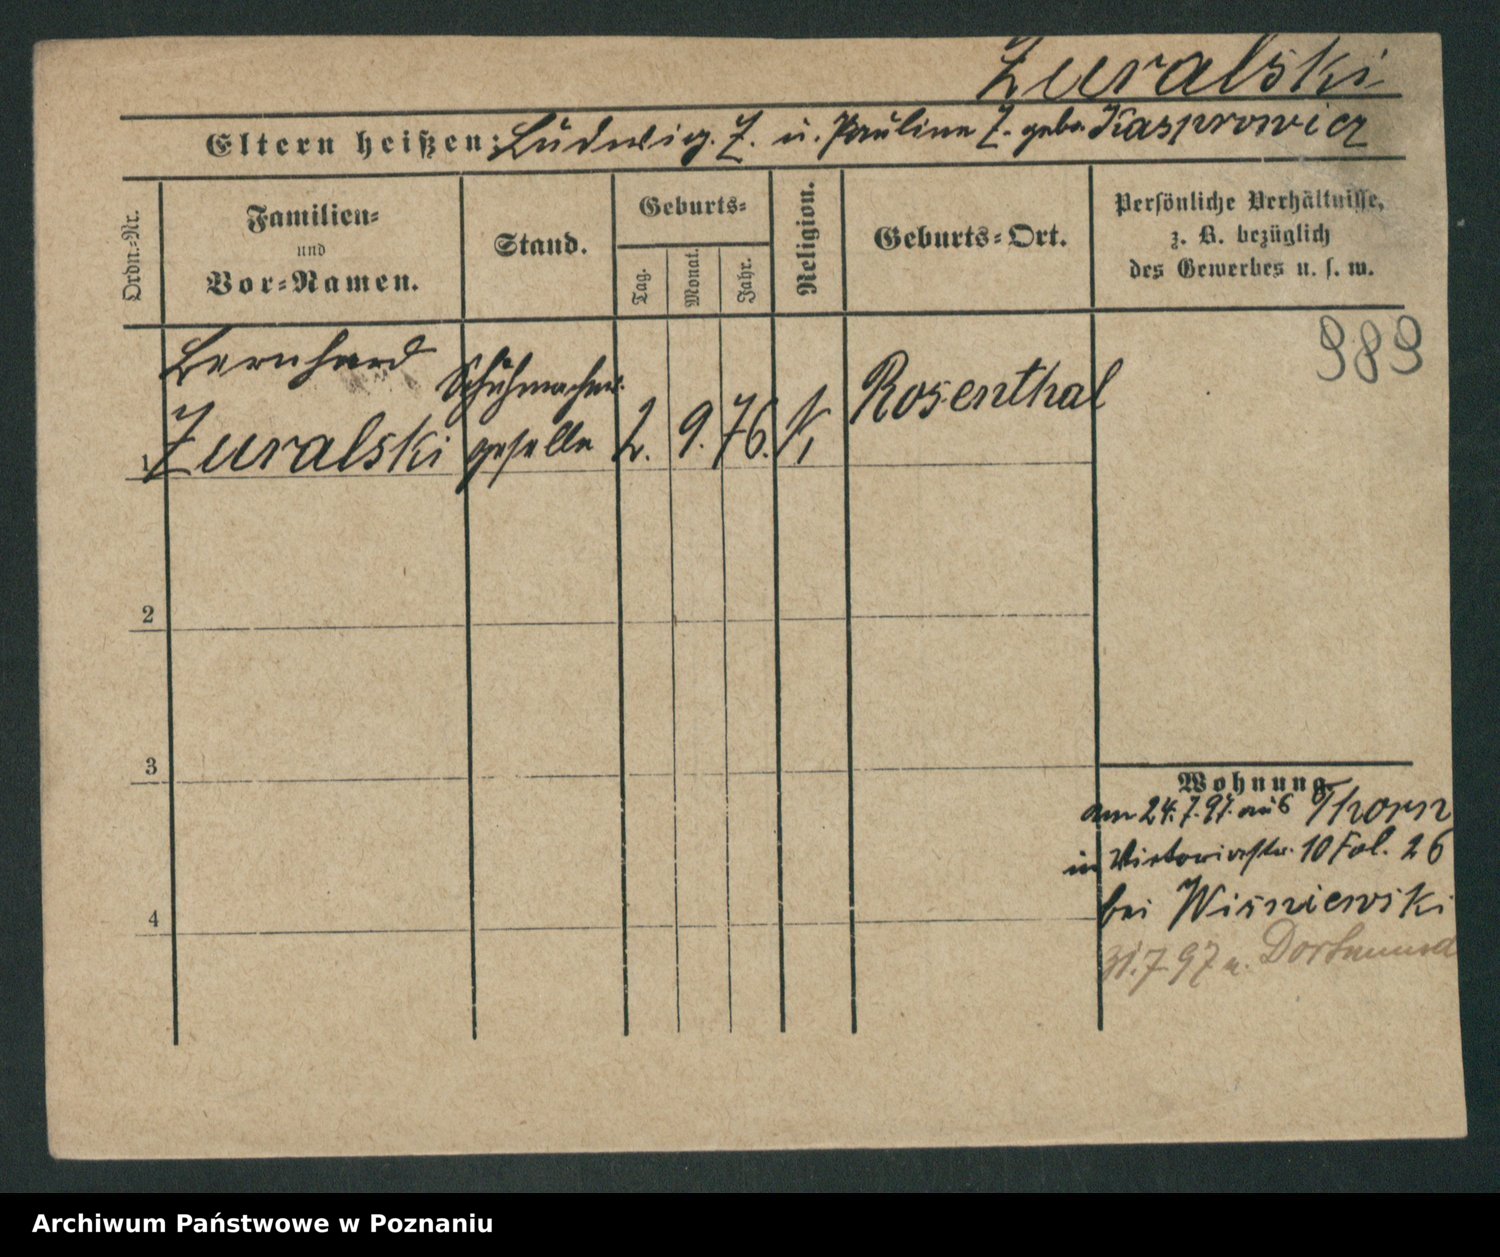 Zuralski
Eltern heißen: Ludwig Z. u. Pauline Z. geb. Kasprowicz
Ordn.-Nr.
Familien-
und
Vor-Namen.
Stand.
Geburts-
Tag.
Monat.
Jahr.
Religion.
Geburts-Ort.
Persönliche Verhältnisse,
z. B. bezüglich
des Gewerbes u. s. w.
989
Bernhard
Zuralski
Schuhmacher
geselle
2. 9. 76. K.
Rosenthal
1
2
3
4
Wohnung
am 24.7.97. aus Thorn
in Victoriastr. 10 Fol. 26
bei Wisniewski
31.7.97 n. Dortmund
Archiwum Państwowe w Poznaniu